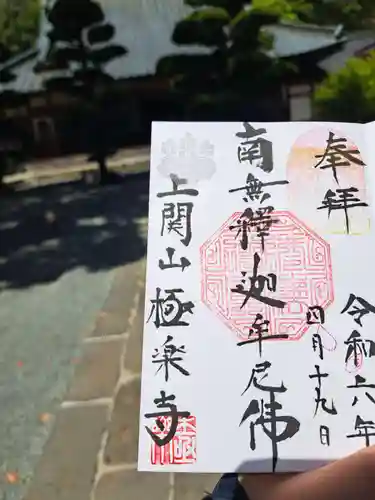 奉拝
令和六年
四月十九日
南無釋迦牟尼佛
上関山極楽寺